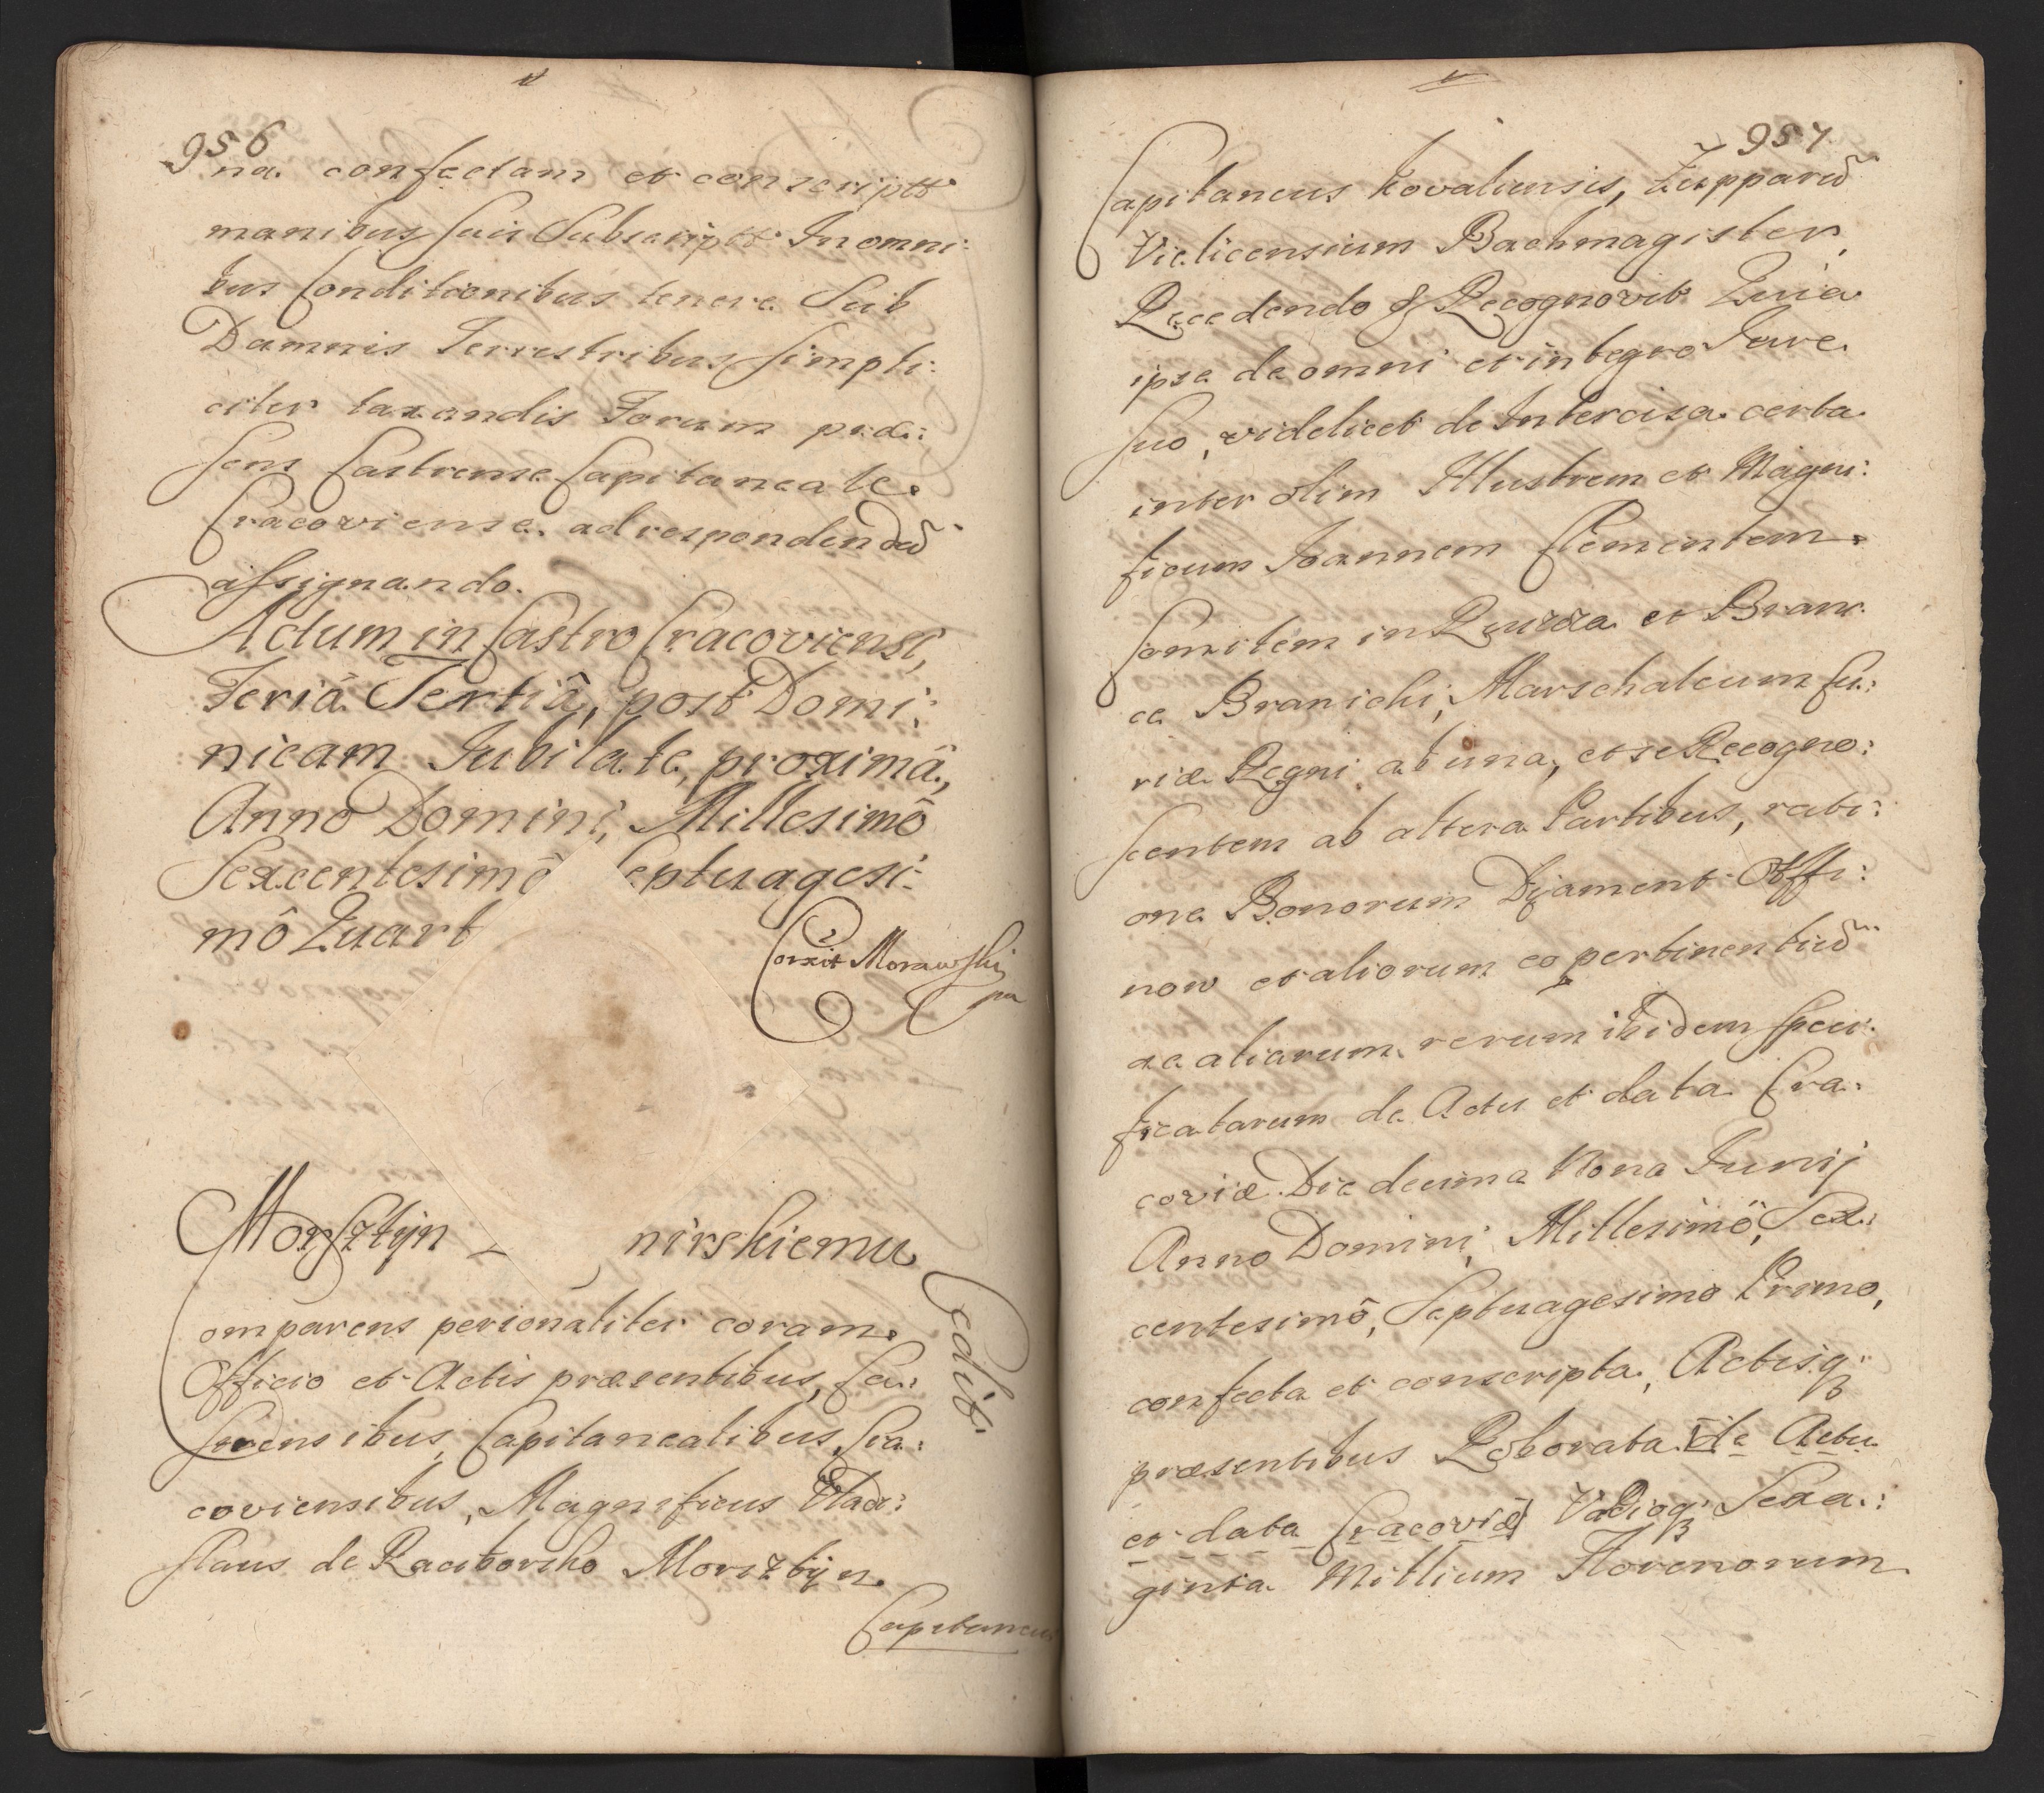 956
na confectam et conscriptt
manibus suis Subscriptt In omni:
bus Conditionibus tenere Sub
Damnis Terrestribus simpli:
citer taxandis Forum præ:
sens Castrense Capitaneale
Cracoviense ad respondendũ
assignando.
Actum in Castro Cracoviensi,
Feriâ Tertiâ, post Domi:
nicam Iubilate, proximâ,
Anno Domini, Millesimô
Sexcentesimô eptuagesi:
mô Quart
Corxit Morawski
mp
Morsztyn nirskiemu
Cedit.
omparens personaliter coram
Officio et Actis præsentibus, Ca:
strensibus, Capitanealibus, Cra:
coviensibus, Magnificus Vladi:
slaus de Raciborsko Morsztyn
Capitaneus
957
Capitaneus Kovaliensis, Zupparũ
Vielicensium Bachmagister,
Recedendo & Recognovit Quia
ipse de omni et integro Iure
suo, videlicet de Intercisa certa
inter olim Illustrem et Magni:
ficum Ioannem Clementem
Comitem in Ruszcza et Brani:
ce Branicki, Marschalcum Cu:
riæ Regni ab una, et se Recogno:
scentem ab altera Partibus, rati:
one Bonorum Dijament Offi:
now et aliorum eo pertinentiũ
ac aliarum rerum ibidem speci:
ficatarum de Actu et data Cra:
coviæ Die decima Nona Iunij
Anno Domini, Millesimô, Sex:
centesimô, Septuagesimo Primo,
confecta et conscripta, Actisq3
præsentibus Roborata [de Actu
et data Cracoviæ] Vadioq3 Sexa:
ginta Millium Florenorum